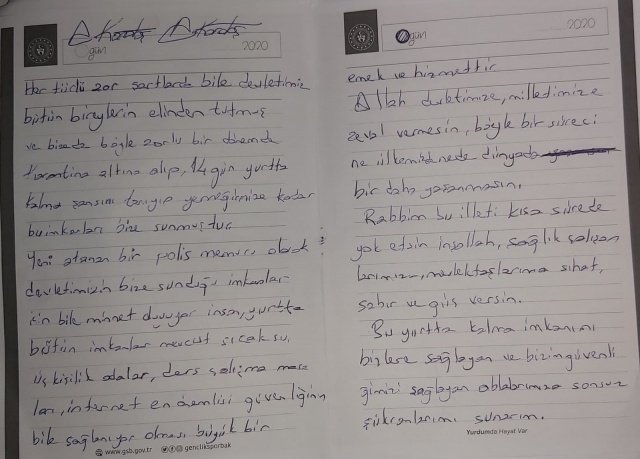 gün
2020
Her türlü zor şartlarda bile devletimiz
bütün bireylerin elinden tutmuş
ve bizede böyle zorlu bir dönemde
karantina altına alıp, 14 gün yurtta
kalma şansını tanıyıp yemeğimize kadar
bu imkanları bize sunmuştur
Yeni atanan bir polis memuru olarak
devletimizin bize sunduğu imkanlar
için bile minnet duyuyor insan, yurtta
bütün imkanlar mevcut sıcak su,
üç kişilik odalar, ders çalışma masa
ları, internet en önemlisi güvenliğinin
bile sağlanıyor olması büyük bir
www.gsb.gov.tr gencliksporbak
gün
2020
emek ve hizmettir
Allah devletimize, milletimize
zeval vermesin, böyle bir süreci
ne ülkemizde nede dünyada
bir daha yaşanmasın.
Rabbim bu illeti kısa sürede
yok etsin inşallah, sağlık çalışan
larımıza, meslektaşlarıma sıhat,
sabır ve güç versin.
Bu yurtta kalma imkanını
bizlere sağlayan ve bizim güvenli
ğimizi sağlayan ablalarımıza sonsuz
şükranlarımı sunarım.
Yurdumda Hayat Var